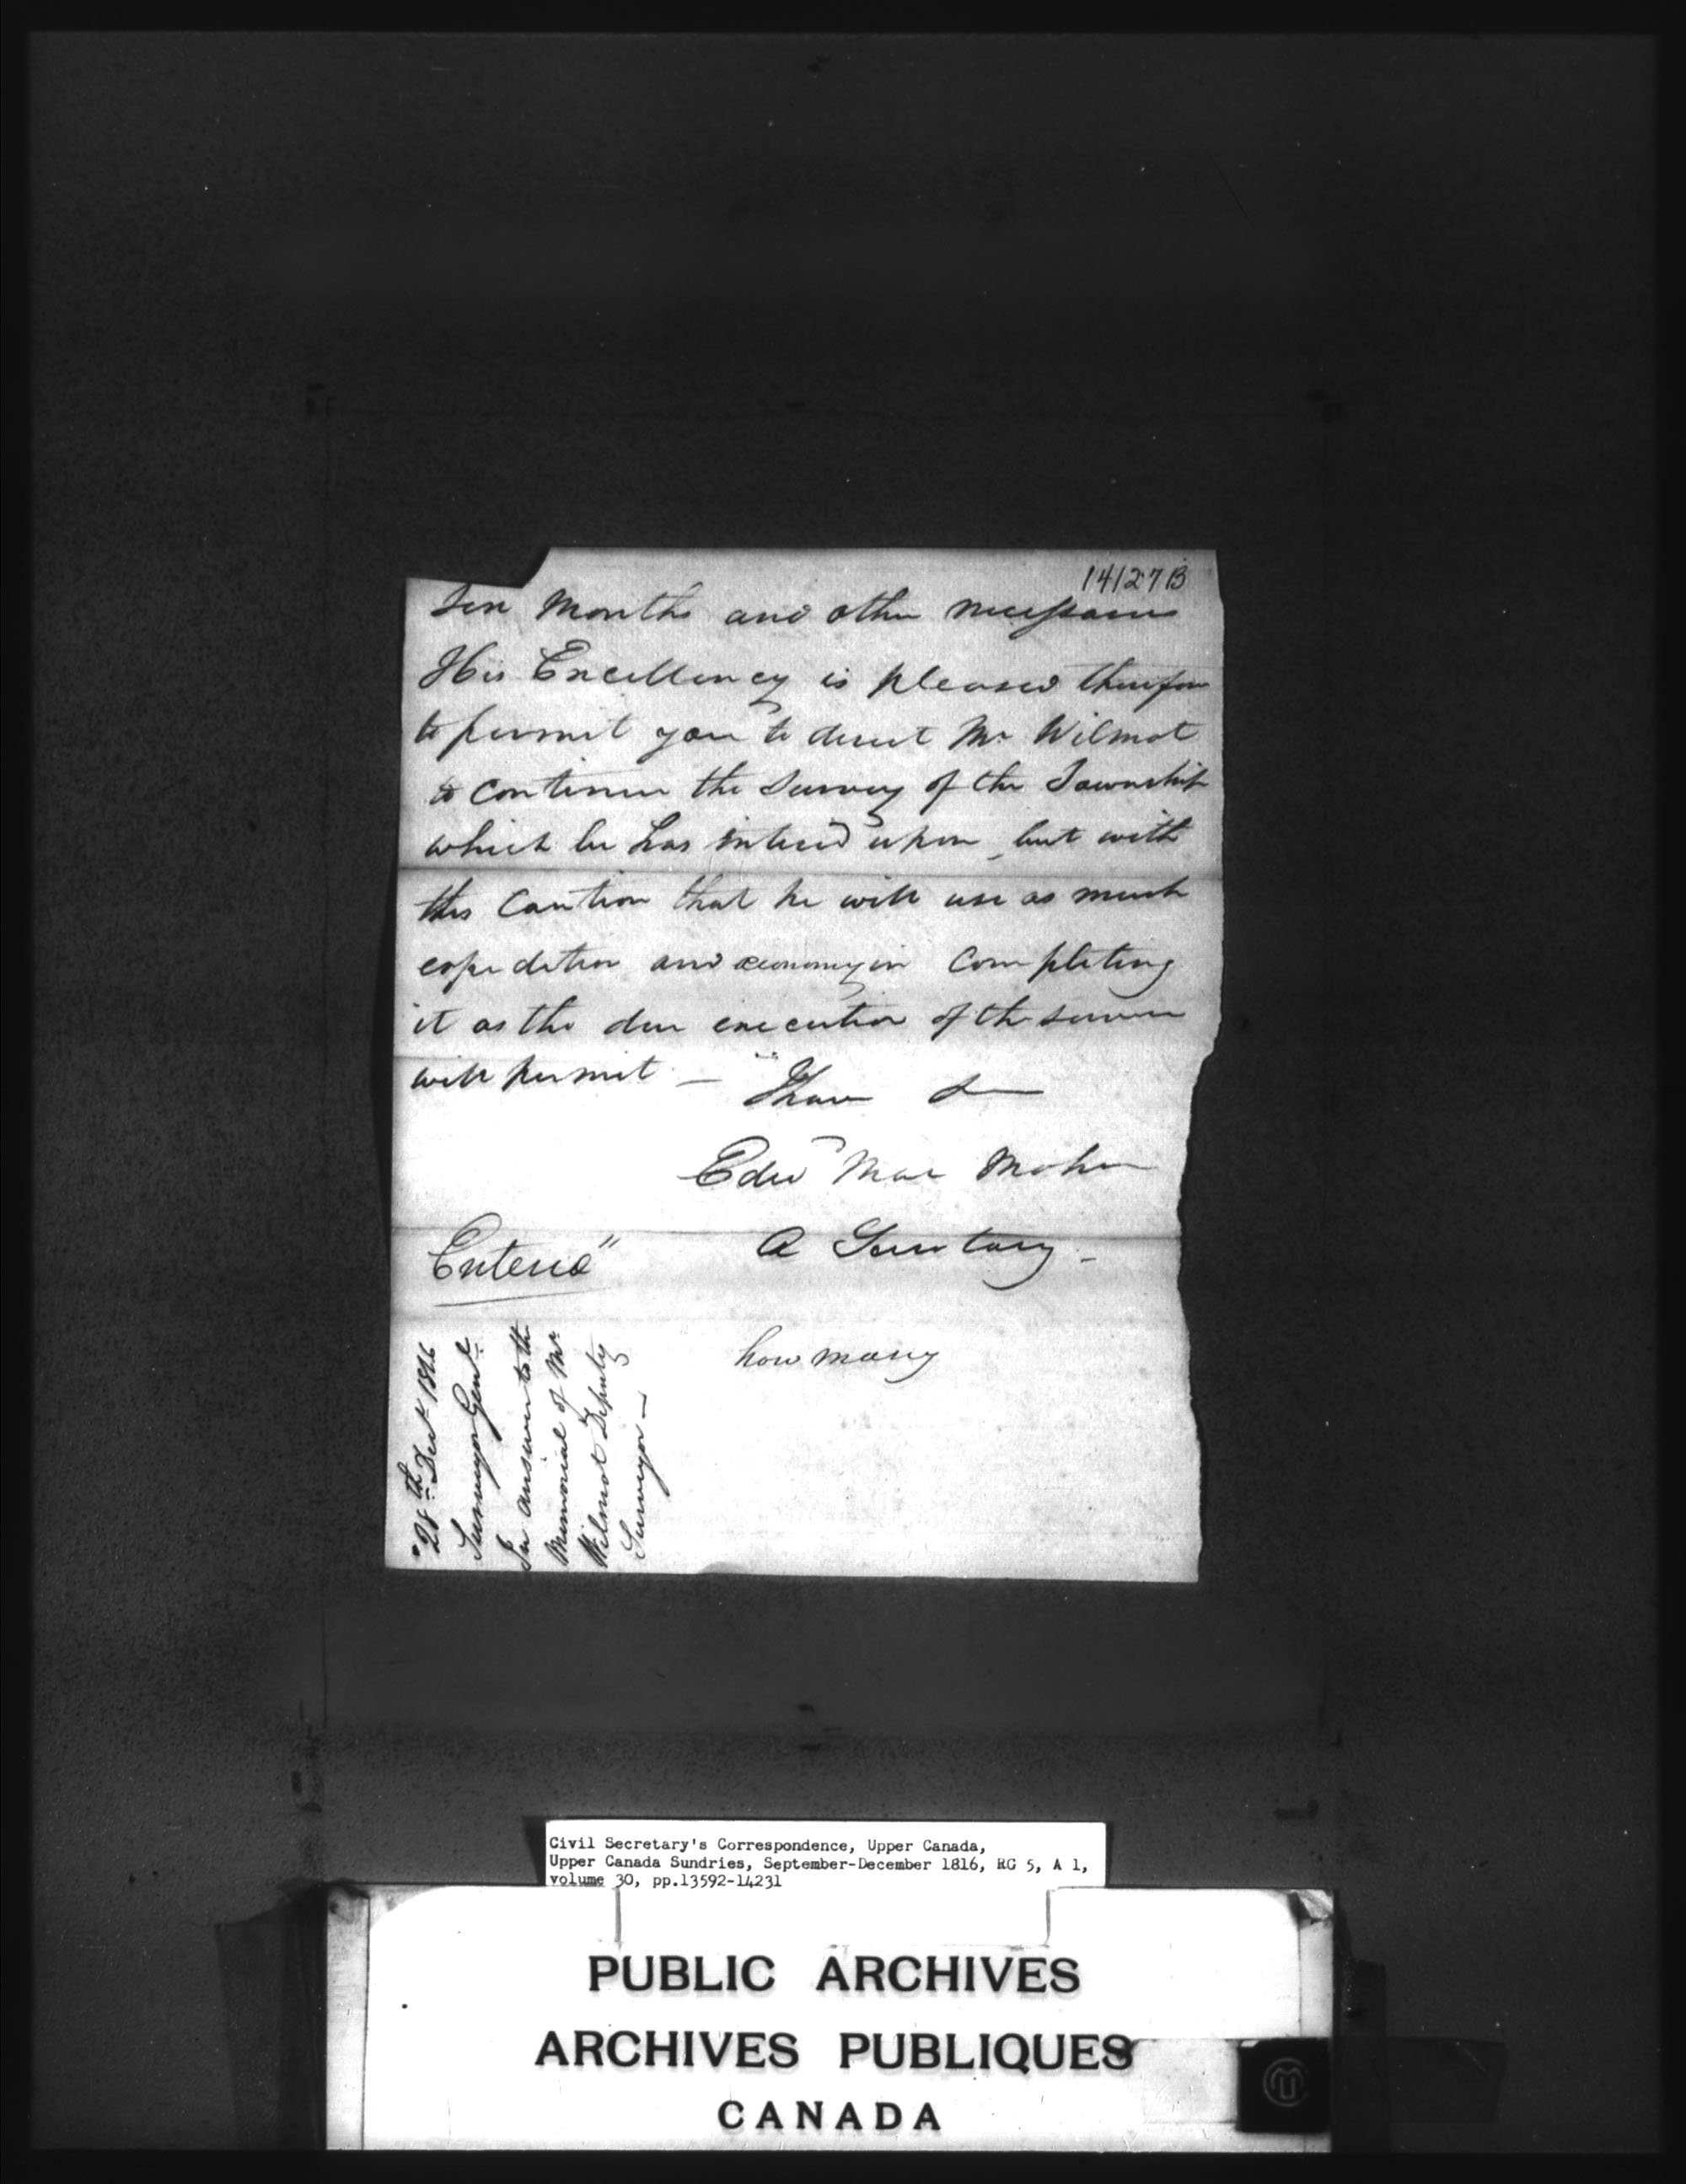 14127B
Ten Months and other necessaries
His Excellency is pleased therefore
to permit you to direct Mr Wilmot
to continue the Survey of the Township
which he has entered upon, but with
this Caution that he will use as much
expedition and œconomy in Completing
it as the due execution of the service
will permit —
I have
Edwd Mac Mahon
A Secretary –
Entered"
how many
28th Decr 1816
Surveyor Genl
In answer to the
Memorial of Mr
Wilmot Deputy
Surveyor —
Civil Secretary's Correspondence, Upper Canada,
Upper Canada Sundries, September-December 1816, RG 5, A 1,
volume 30, pp.13592-14231
PUBLIC ARCHIVES
ARCHIVES PUBLIQUES
CANADA